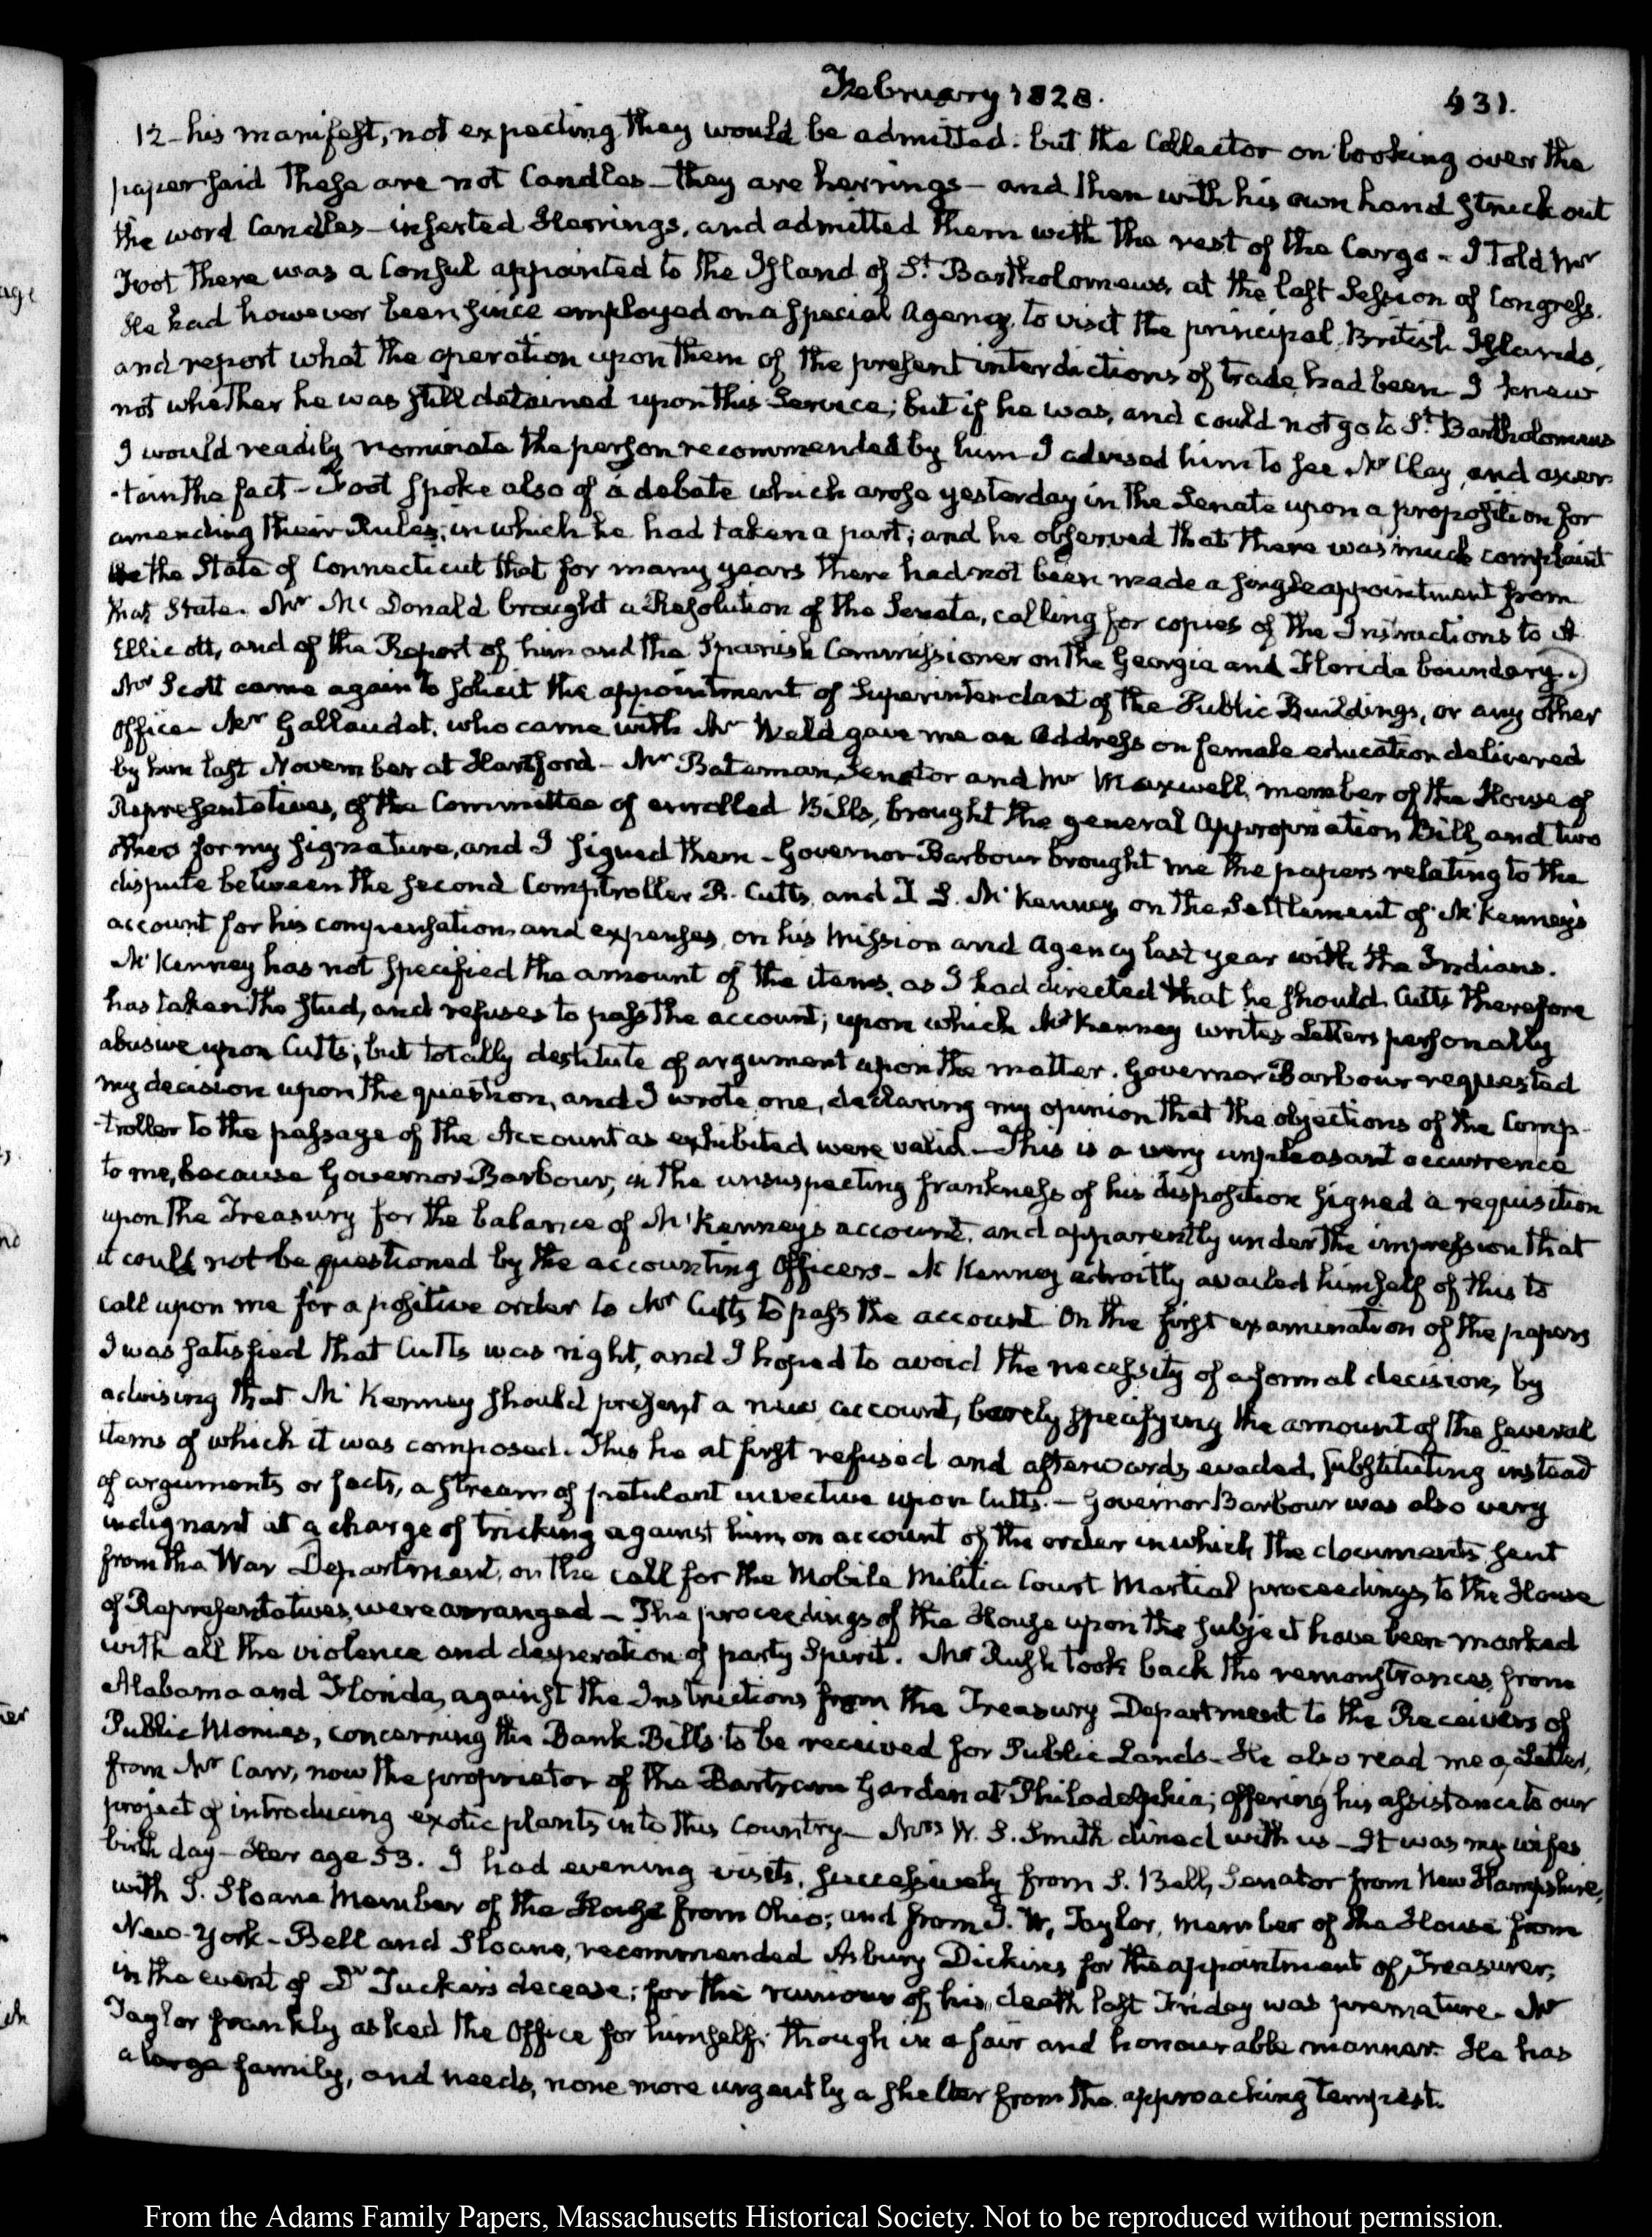 February 1828.
431.
12- his manifest, not expecting they would be admitted: but the Collector on looking over the
paper said These are not Candles - they are herrings - and then with his own hand struck out
the word Candles - inserted Herrings, and admitted them with the rest of the Cargo - I told Mr
Foot there was a Consul appointed to the Island of St Bartholomews, at the last Session of Congress.
He had however been since employed on a special Agency, to visit the principal British Islands,
and report what the operation upon them of the present interdictions of trade, had been - I knew
not whether he was still detained upon this Service; but if he was, and could not go to St Bartholomews
I would readily nominate the person recommended by him - I advised him to see Mr Clay, and ascer-
-tain the fact - Foot spoke also of a debate which arose yesterday in the Senate upon a proposition for
amending their Rules; in which he had taken a part; and he observed that there was much complaint
the State of Connecticut that for many years there had not been made a single appointment from
that State. Mr McDonald brought a Resolution of the Senate, calling for copies of the Instructions to A
Ellicott, and of the Report of him and the Spanish Commissioner on the Georgia and Florida boundary.
Mr Scott came again to solicit the appointment of Superintendant of the Public Buildings, or any other
Office - Mr Gallaudet, who came with Mr Weld gave me an Address on female education delivered
by him last November at Hartford - Mr Bateman, Senator and Mr Maxwell, member of the House of
Representatives, of the Committee of enrolled Bills, brought the general Appropriation Bill, and two
others for my signature, and I signed them - Governor Barbour brought me the papers relating to the
dispute between the second Comptroller R. Cutts, and T. L. McKenney on the Settlement of McKenney's
account for his compensation and expenses, on his Mission and Agency last year with the Indians.
McKenney has not specified the amount of the items, as I had directed that he should. Cutts therefore
has taken the stud, and refuses to pass the account; upon which McKenney writes Letters personally
abusive upon Cutts; but totally destitute of argument upon the matter. Governor Barbour requested
my decision upon the question, and I wrote one, declaring my opinion that the objections of the Comp-
-troller to the passage of the Account as exhibited were valid - This is a very unpleasant occurrence
to me, because Governor Barbour, in the unsuspecting frankness of his disposition signed a requisition
upon the Treasury for the balance of McKenney's account, and apparently under the impression that
it could not be questioned by the accounting Officers - McKenney adroitly availed himself of this to
call upon me for a positive order to Mr Cutts to pass the account. On the first examination of the papers
I was satisfied that Cutts was right, and I hoped to avoid the necessity of a formal decision, by
advising that McKenney should present a new account, barely specifying the amount of the several
items of which it was composed. This he at first refused and afterwards evaded, substituting instead
of arguments or facts, a stream of petulant invective upon Cutts. - Governor Barbour was also very
indignant at a charge of tricking against him, on account of the order in which the documents sent
from the War Department, on the call for the Mobile Militia Court Martial proceedings, to the House
of Representatives, were arranged - The proceedings of the House upon the subject have been marked
with all the violence and desperation of party Spirit. Mr Rush took back the remonstrances from
Alabama and Florida, against the Instructions from the Treasury Department to the Receivers of
Public Monies, concerning the Bank Bills to be received for Public Lands - He also read me a Letter,
from Mr Carr, now the proprietor of the Bartram Garden at Philadelphia; offering his assistance to our
project of introducing exotic plants into this Country - Mrs W. S. Smith dined with us - It was my wife's
birth day - Her age 53. I had evening visits, successively from S. Bell, Senator from New Hampshire,
with J. Sloane Member of the House from Ohio; and from J. W. Taylor, member of the House from
New-York - Bell and Sloane, recommended Asbury Dickins for the appointment of Treasurer,
in the event of Dr Tucker's decease; for the rumour of his death last Friday was premature - Mr
Taylor frankly asked the Office for himself; though in a fair and honourable manner. He has
a large family, and needs, none more urgently a shelter from the approaching tempest.
From the Adams Family Papers, Massachusetts Historical Society. Not to be reproduced without permission.